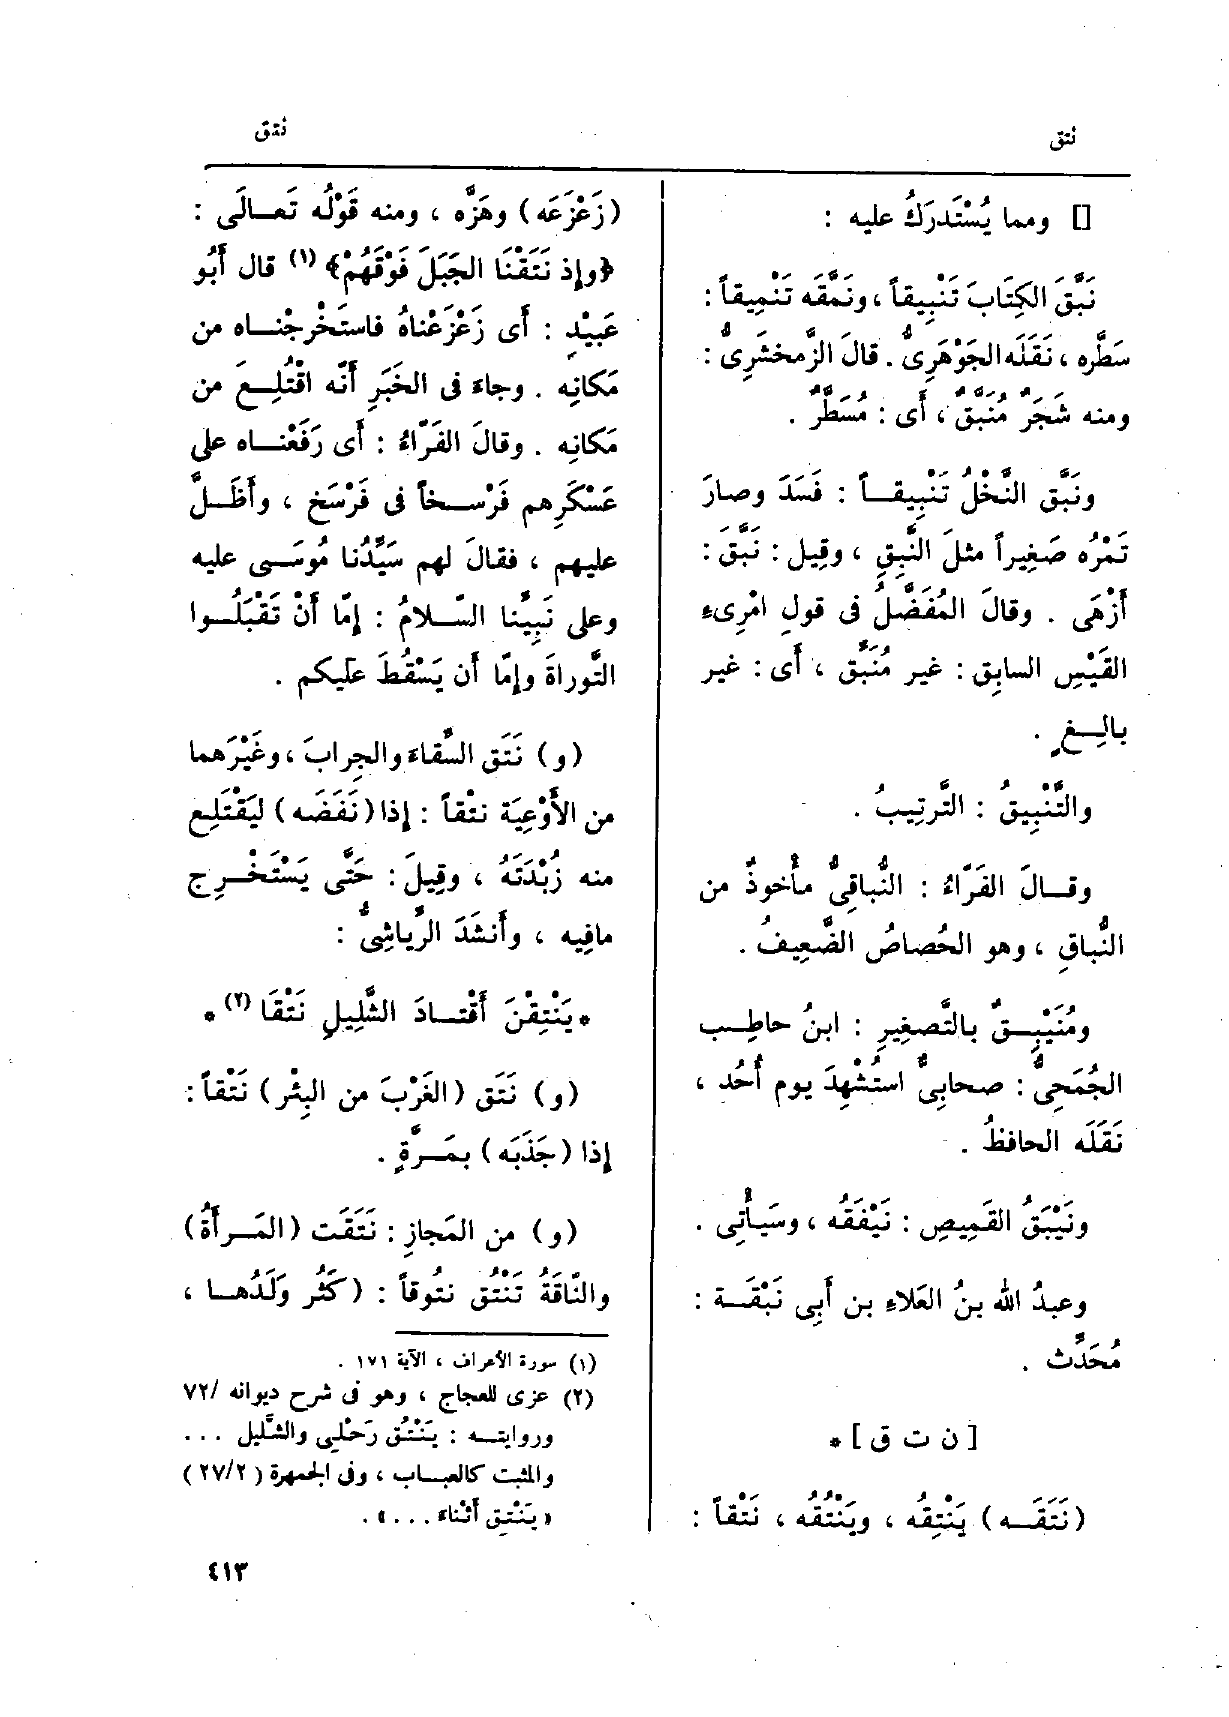 نتق
نتق
[] ومما يُسْتَدرَكُ عليه :
نَبَّقَ الكِتَابَ تَنْبِيقاً ، ونَمَّقَه تَنْمِيقاً :
سَطَّره ، نَقَلَه الجَوْهَرِىُّ . قالَ الزَّمخشَرِىُّ :
ومنه شَجَرٌ مُنَبَّقٌ ، أَى : مُسَطَّرٌ .
ونَبَّق النَّخْلُ تَنْبِيقاً : فَسَدَ وصارَ
تَمْرُه صَغِيراً مثلَ النَّبِقِ ، وقِيل : نَبَّقَ :
أَزْهَى . وقالَ المُفَضَّلُ فى قولِ امْرِىءِ
القَيْسِ السابِق : غير مُنَبَّق ، أَى : غير
بالِغٍ .
والتَّنْبِيقُ : التَّرتِيبُ .
وقالَ الفَرّاءُ : النُّباقِىُّ مأْخوذٌ من
النُّباقِ ، وهو الحُصاصُ الضَّعِيفُ .
ومُنَيْبِقٌ بالتَّصغِيرِ : ابنُ حاطِب
الجُمَحِىُّ : صحابِىٌّ استُشْهِدَ يوم أُحُد ،
نَقَلَه الحافظُ .
ونَيْبَقُ القَمِيصِ : نَيْفَقُه ، وسَيأْتِى .
وعبدُ الله بنُ العَلاءِ بن أَبِى نَبْقَة :
مُحَدِّث .
[ ن ت ق ] *
(نَتَقَه) يَنْتِقُه ، ويَنْتُقُه ، نَتْقاً :
(زَعْزَعَه) وهَزَّه ، ومنه قَوْلُه تَعالَى :
﴿وإِذ نَتَقْنَا الجَبَلَ فَوْقَهُمْ﴾ (١) قال أَبُو
عَبيْدٍ : أَى زَعْزَعْناهُ فاستَخْرجْناه من
مَكانِه . وجاءَ فى الخَبَرِ أَنَّه اقْتُلِعَ من
مَكانِه . وقالَ الفَرّاءُ : أَى رَفَعْناه على
عَسْكَرِهم فَرْسخاً فى فَرْسَخ ، وأَظَلَّ
عليهم ، فقالَ لهم سَيِّدُنا مُوسَى عليه
وعلى نَبِيِّنا السّلامُ : إِمّا أَنْ تَقْبَلُوا
التَّوراةَ وإِمّا أَن يَسْقُطَ عليكم .
(و) نَتَق السِّقاءَ والجِرابَ ، وغَيْرَهما
من الأَوْعِيَة نتْقاً : إِذا (نَفَضَه) ليَقْتَلِع
منه زُبْدَتَهُ ، وقِيلَ : حَتَّى يَسْتَخْرِج
مافِيه ، وأَنشَدَ الرِّياشِىُّ :
* يَنْتِقْنَ أَقْتادَ الشَّلِيلِ نَتْقَا (٢) *
(و) نَتَق (الغَرْبَ من البِئْر) نَتْقاً :
إِذا (جَذَبَه) بمَرَّةٍ .
(و) من المَجازِ : نَتَقَت (المَرأَةُ)
والنَّاقَةُ تَنْتُق نتُوقاً : (كَثُر وَلَدُها ،
(١) سورة الأعراف ، الآية ١٧١ .
(٢) عزى للعجاج ، وهو فى شرح ديوانه /٧٢
وروايته : يَنْتُق رَحْلِى والشَّلِيل ...
والمثبت كالعباب ، وفى الجمهرة (٢٧/٢)
« يَنْتِق أَثناءَ ... » .
٤١٣